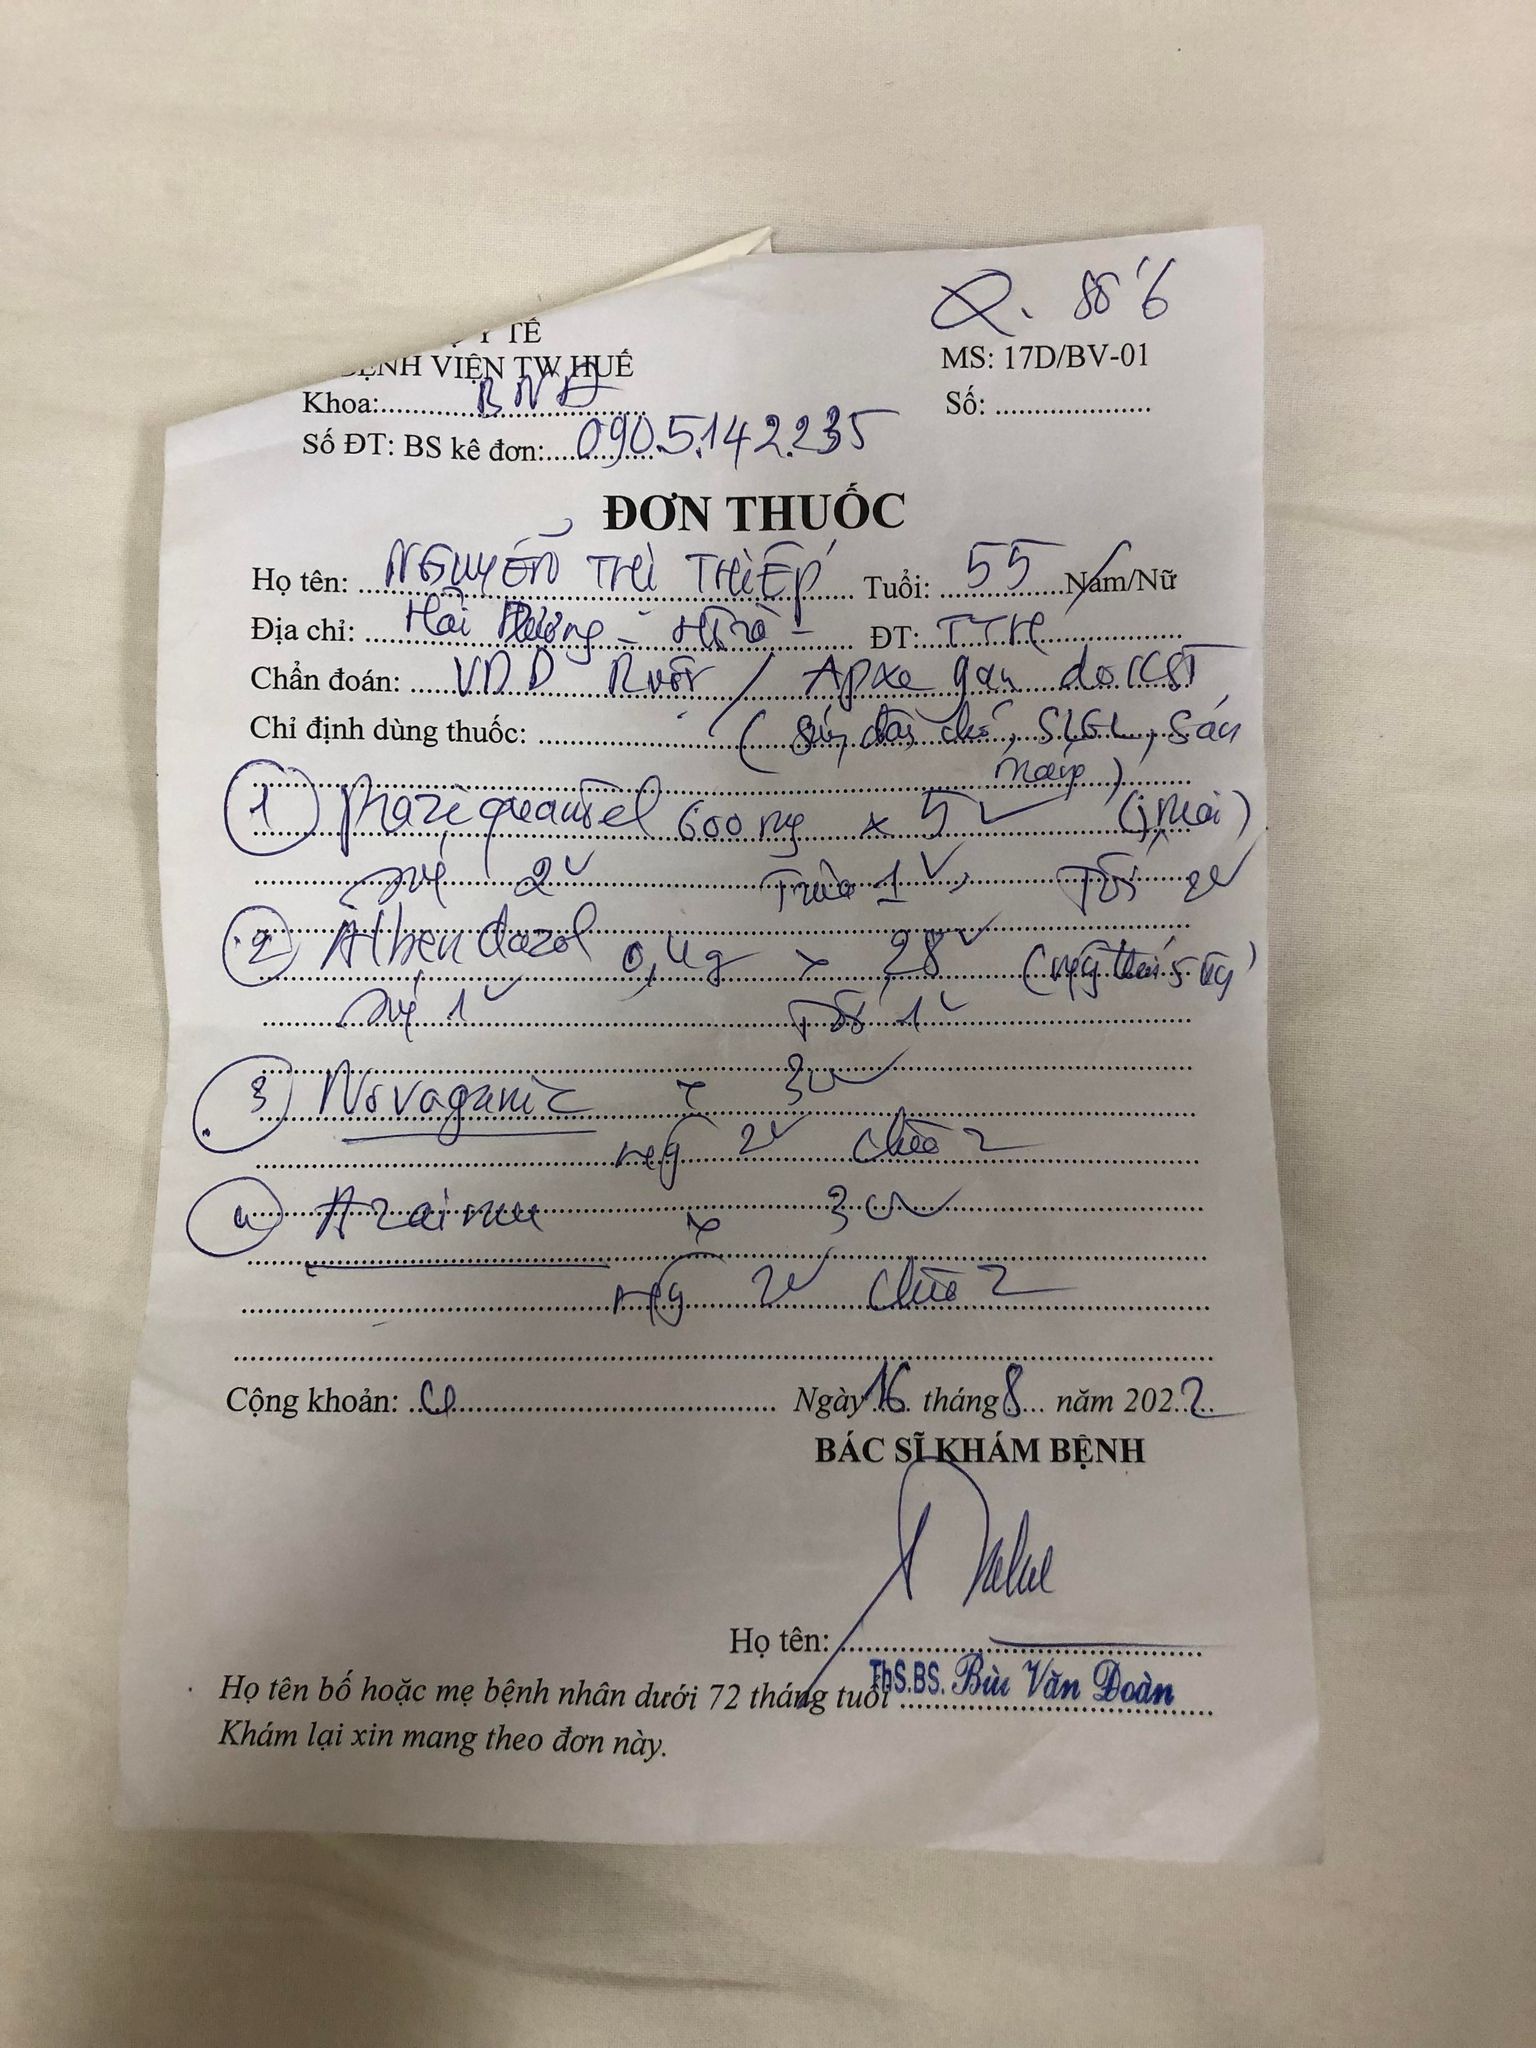 Y TẾ
BỆNH VIỆN TW HUẾ
MS: 17D/BV-01
Khoa:
Số:
Số ĐT: BS kê đơn: 0905.142.235
ĐƠN THUỐC
Họ tên: NGUYỄN THỊ THIẾP Tuổi: 55 Nam/Nữ
Địa chỉ: Hải Dương - ĐT: TTH
Chẩn đoán: VDD Ruột / Apxe gan do KST
Chỉ định dùng thuốc: (Sán đãi chó, SLGL, Sán
máng)
1 Praziquantel 600mg x 5v
2v Trưa 1v, Tối 2v
2 Albendazol 0,4g x 28v
1v Tối 1v
3 Novaganic x 30v
ng 2v chia 2
4 x 30v
ng 2v chia 2
Cộng khoản: 4 Ngày 16 tháng 8 năm 2022
BÁC SĨ KHÁM BỆNH
Họ tên:
ThS.BS. Bùi Văn Đoàn
Họ tên bố hoặc mẹ bệnh nhân dưới 72 tháng tuổi
Khám lại xin mang theo đơn này.